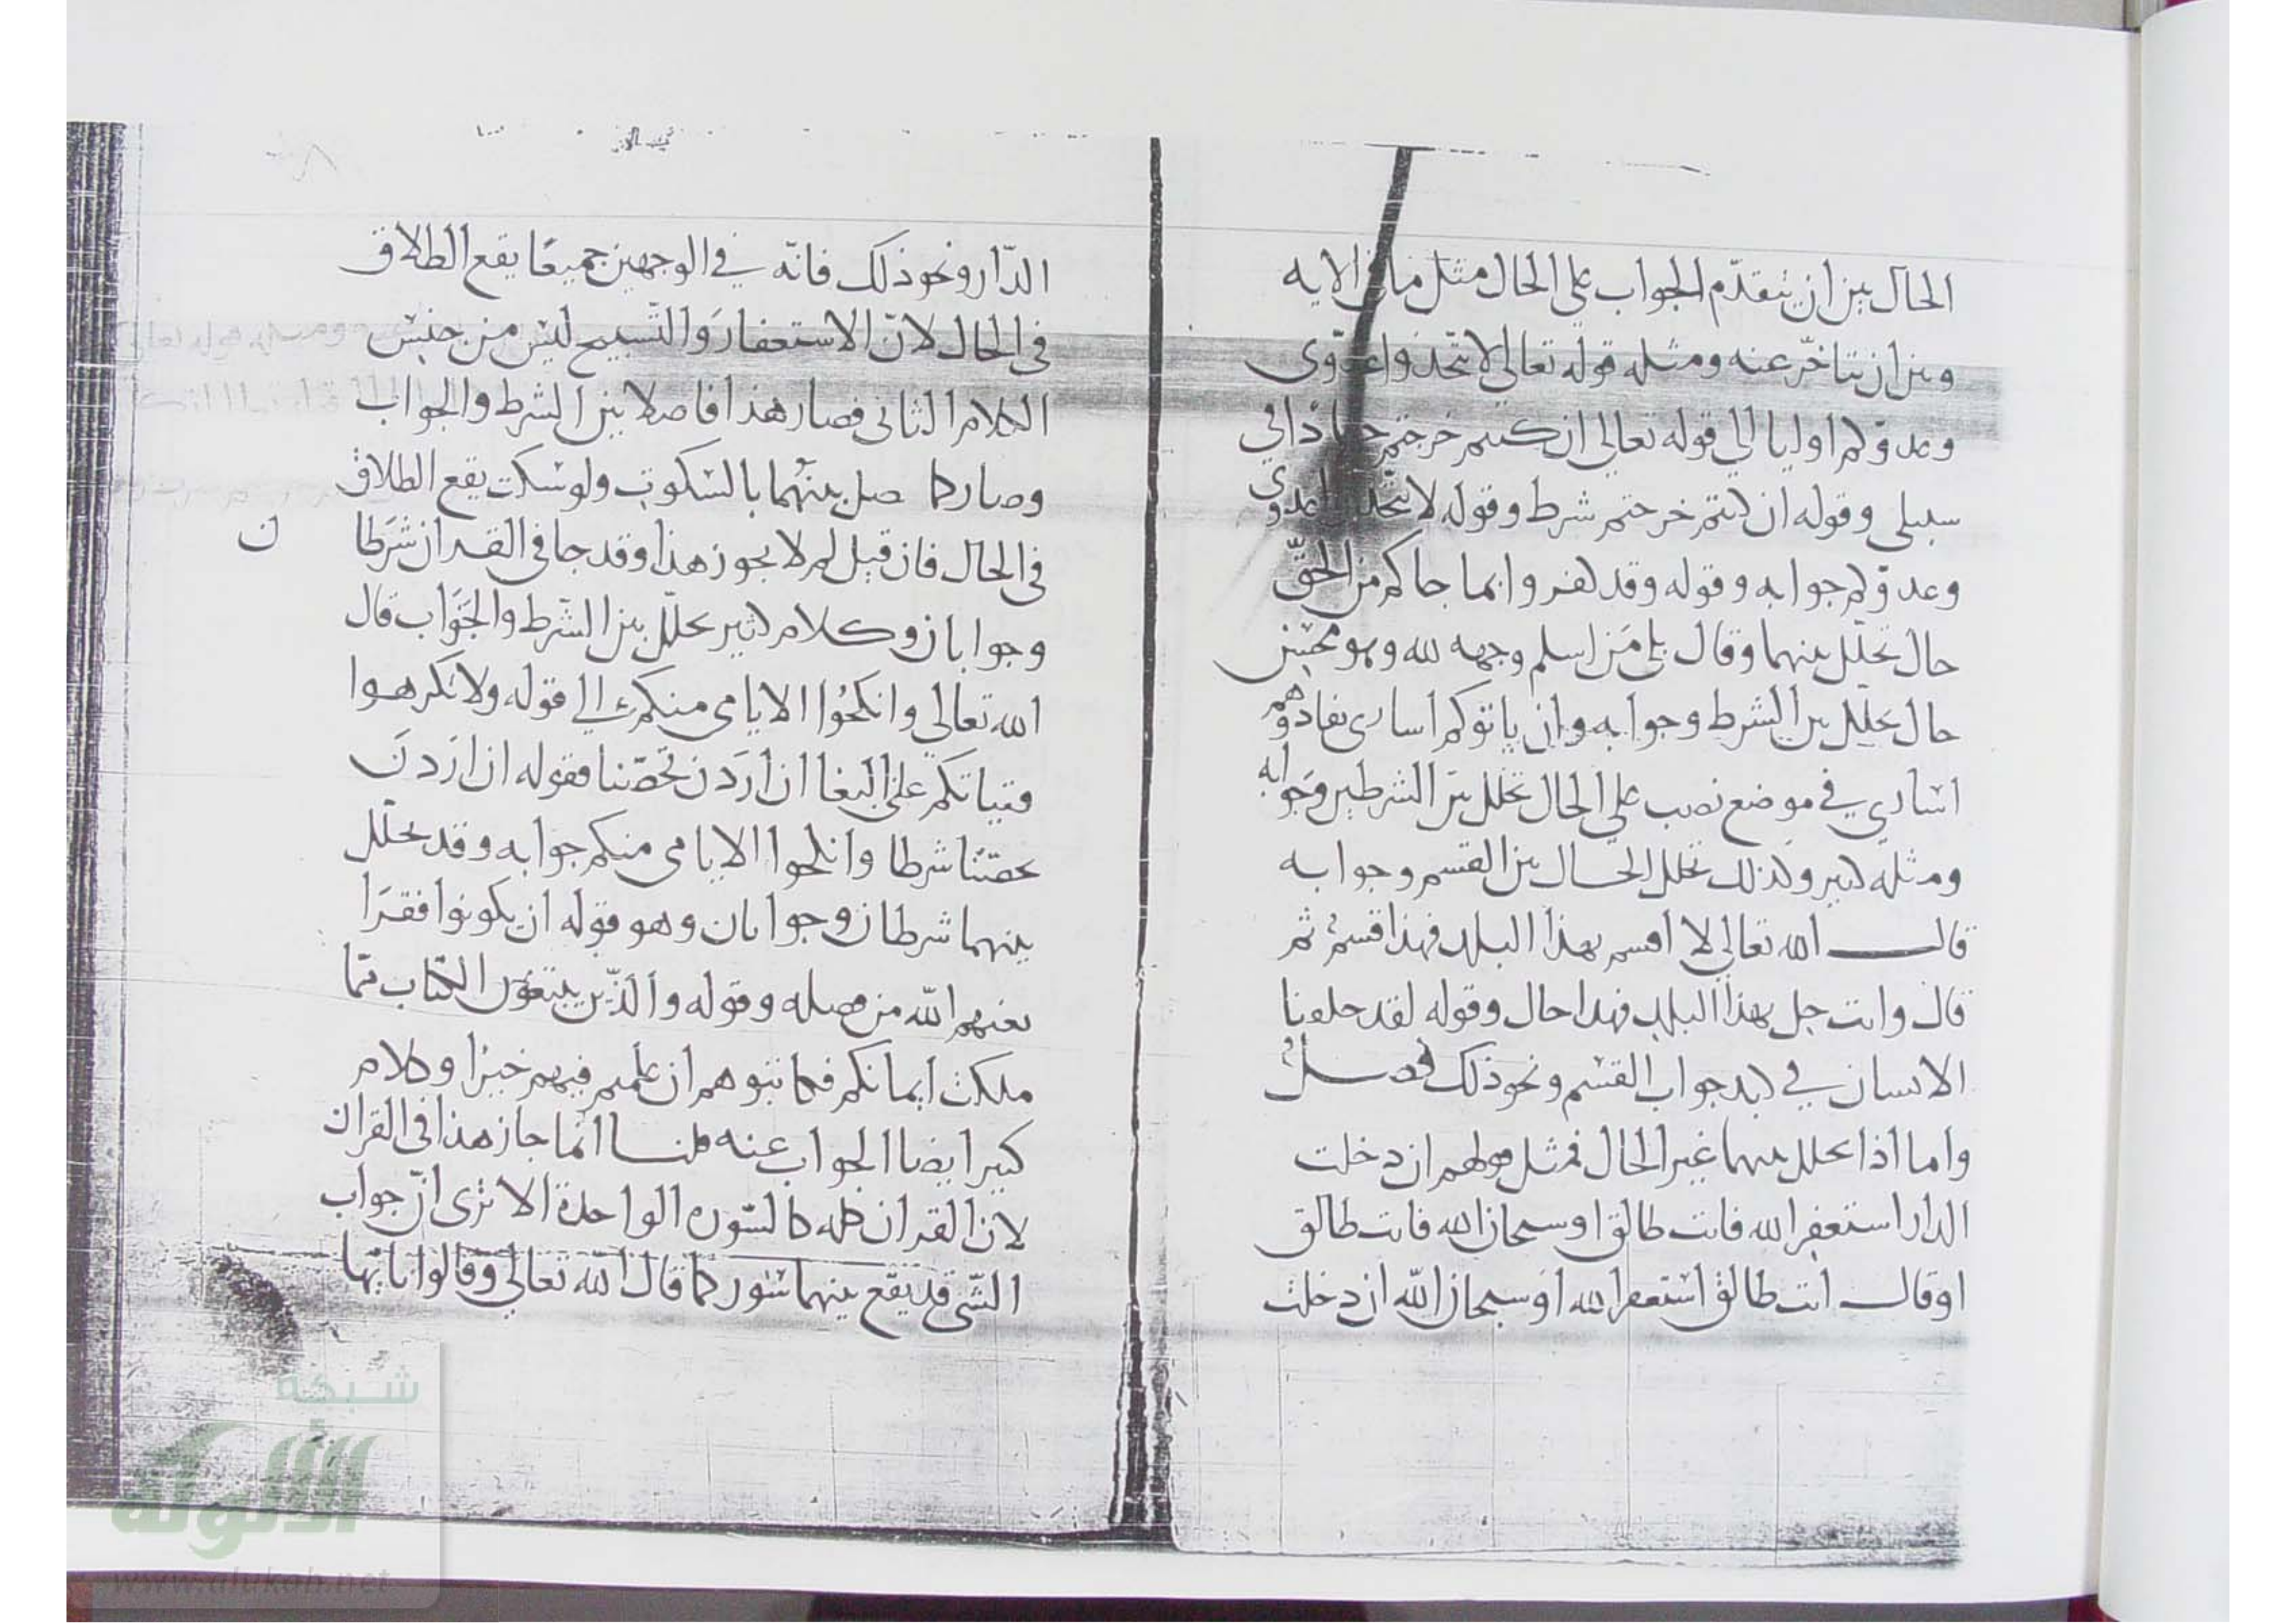 الحال بين ان يتقدّم الجواب على الحال مثل ما في الايه
وبين ان يتاخّر عنه ومثله قوله تعالى لا تتّخذوا عدوّى
وعدوّكم اوليا الى قوله تعالى ان كنتم خرجتم جهادا في
سبيلى وقوله ان كنتم خرجتم شرط وقوله لا تتّخذوا عدوي
وعدوّكم جوابه وقوله وقد كفروا بما جاكم من الحقّ
حال تخلّل بينهما وقال بلى مَن اسلم وجهه لله وهو محسن
حال تخلّل بين الشرط وجوابه وان ياتوكم اسارى تفادوهم
اسارى في موضع نصب على الحال تخلل بين الشرطين وجوابه
ومثله كثير وكذلك تخلل الحال بين القسم وجوابه
قال الله تعالى لا اقسم بهذا البلد فهذا قسمٌ ثم
قال وانت حل بهذا البلد فهذا حال وقوله لقد خلقنا
الانسان في كبد جواب القسم ونحو ذلك فصلٌ
واما اذا تخلل بينهما غير الحال فمثل قولهم ان دخلت
الدار استغفر الله فانت طالق او سبحان الله فانت طالق
او قال انت طالق استغفر الله او سبحان الله ان دخلت
الدّار ونحو ذلك فانّه في الوجهين جميعًا يقع الطلاق
في الحال لانّ الاستغفارَ والتّسبيح ليس من جنس
الكلام الثانى فصار هذا فاصلا بين الشرط والجواب
وصار كما صل بينهُما بالسكوت ولو سكت يقع الطلاق
في الحال فان قيل لم لا يجوز هذا وقد جا في القران شرَطا
ن
وجوابان وكلام كثير تخلّل بين الشّرط والجَوَاب قال
الله تعالى وانكحُوا الايامى منكم الى قوله ولا تكرهوا
فتياتكم على البغا ان ارَدن تحصّنا فقوله ان ارَدنَ
تحصّنًا شرطا وانكحوا الايامى منكم جوابه وقد تخلّل
بينهما شرطان وجوابان وهو قوله ان يكونوا فقرَا
يغنهم الله من فضله وقوله والذّين يبتغوُن الكتاب ممّا
ملكت ايمانكم فكاتبوهم ان علمتم فيهم خيرًا وكلام
كثير ايضا الجواب عنه قلنا انّما جاز هذا في القران
لان القران كله كالسّورة الواحدة الا ترى انّ جواب
الشّى قد يقع بينهما سُور كما قال الله تعالى وقالوا يا ايّها
شبكة
الألوكة
www.alukah.net